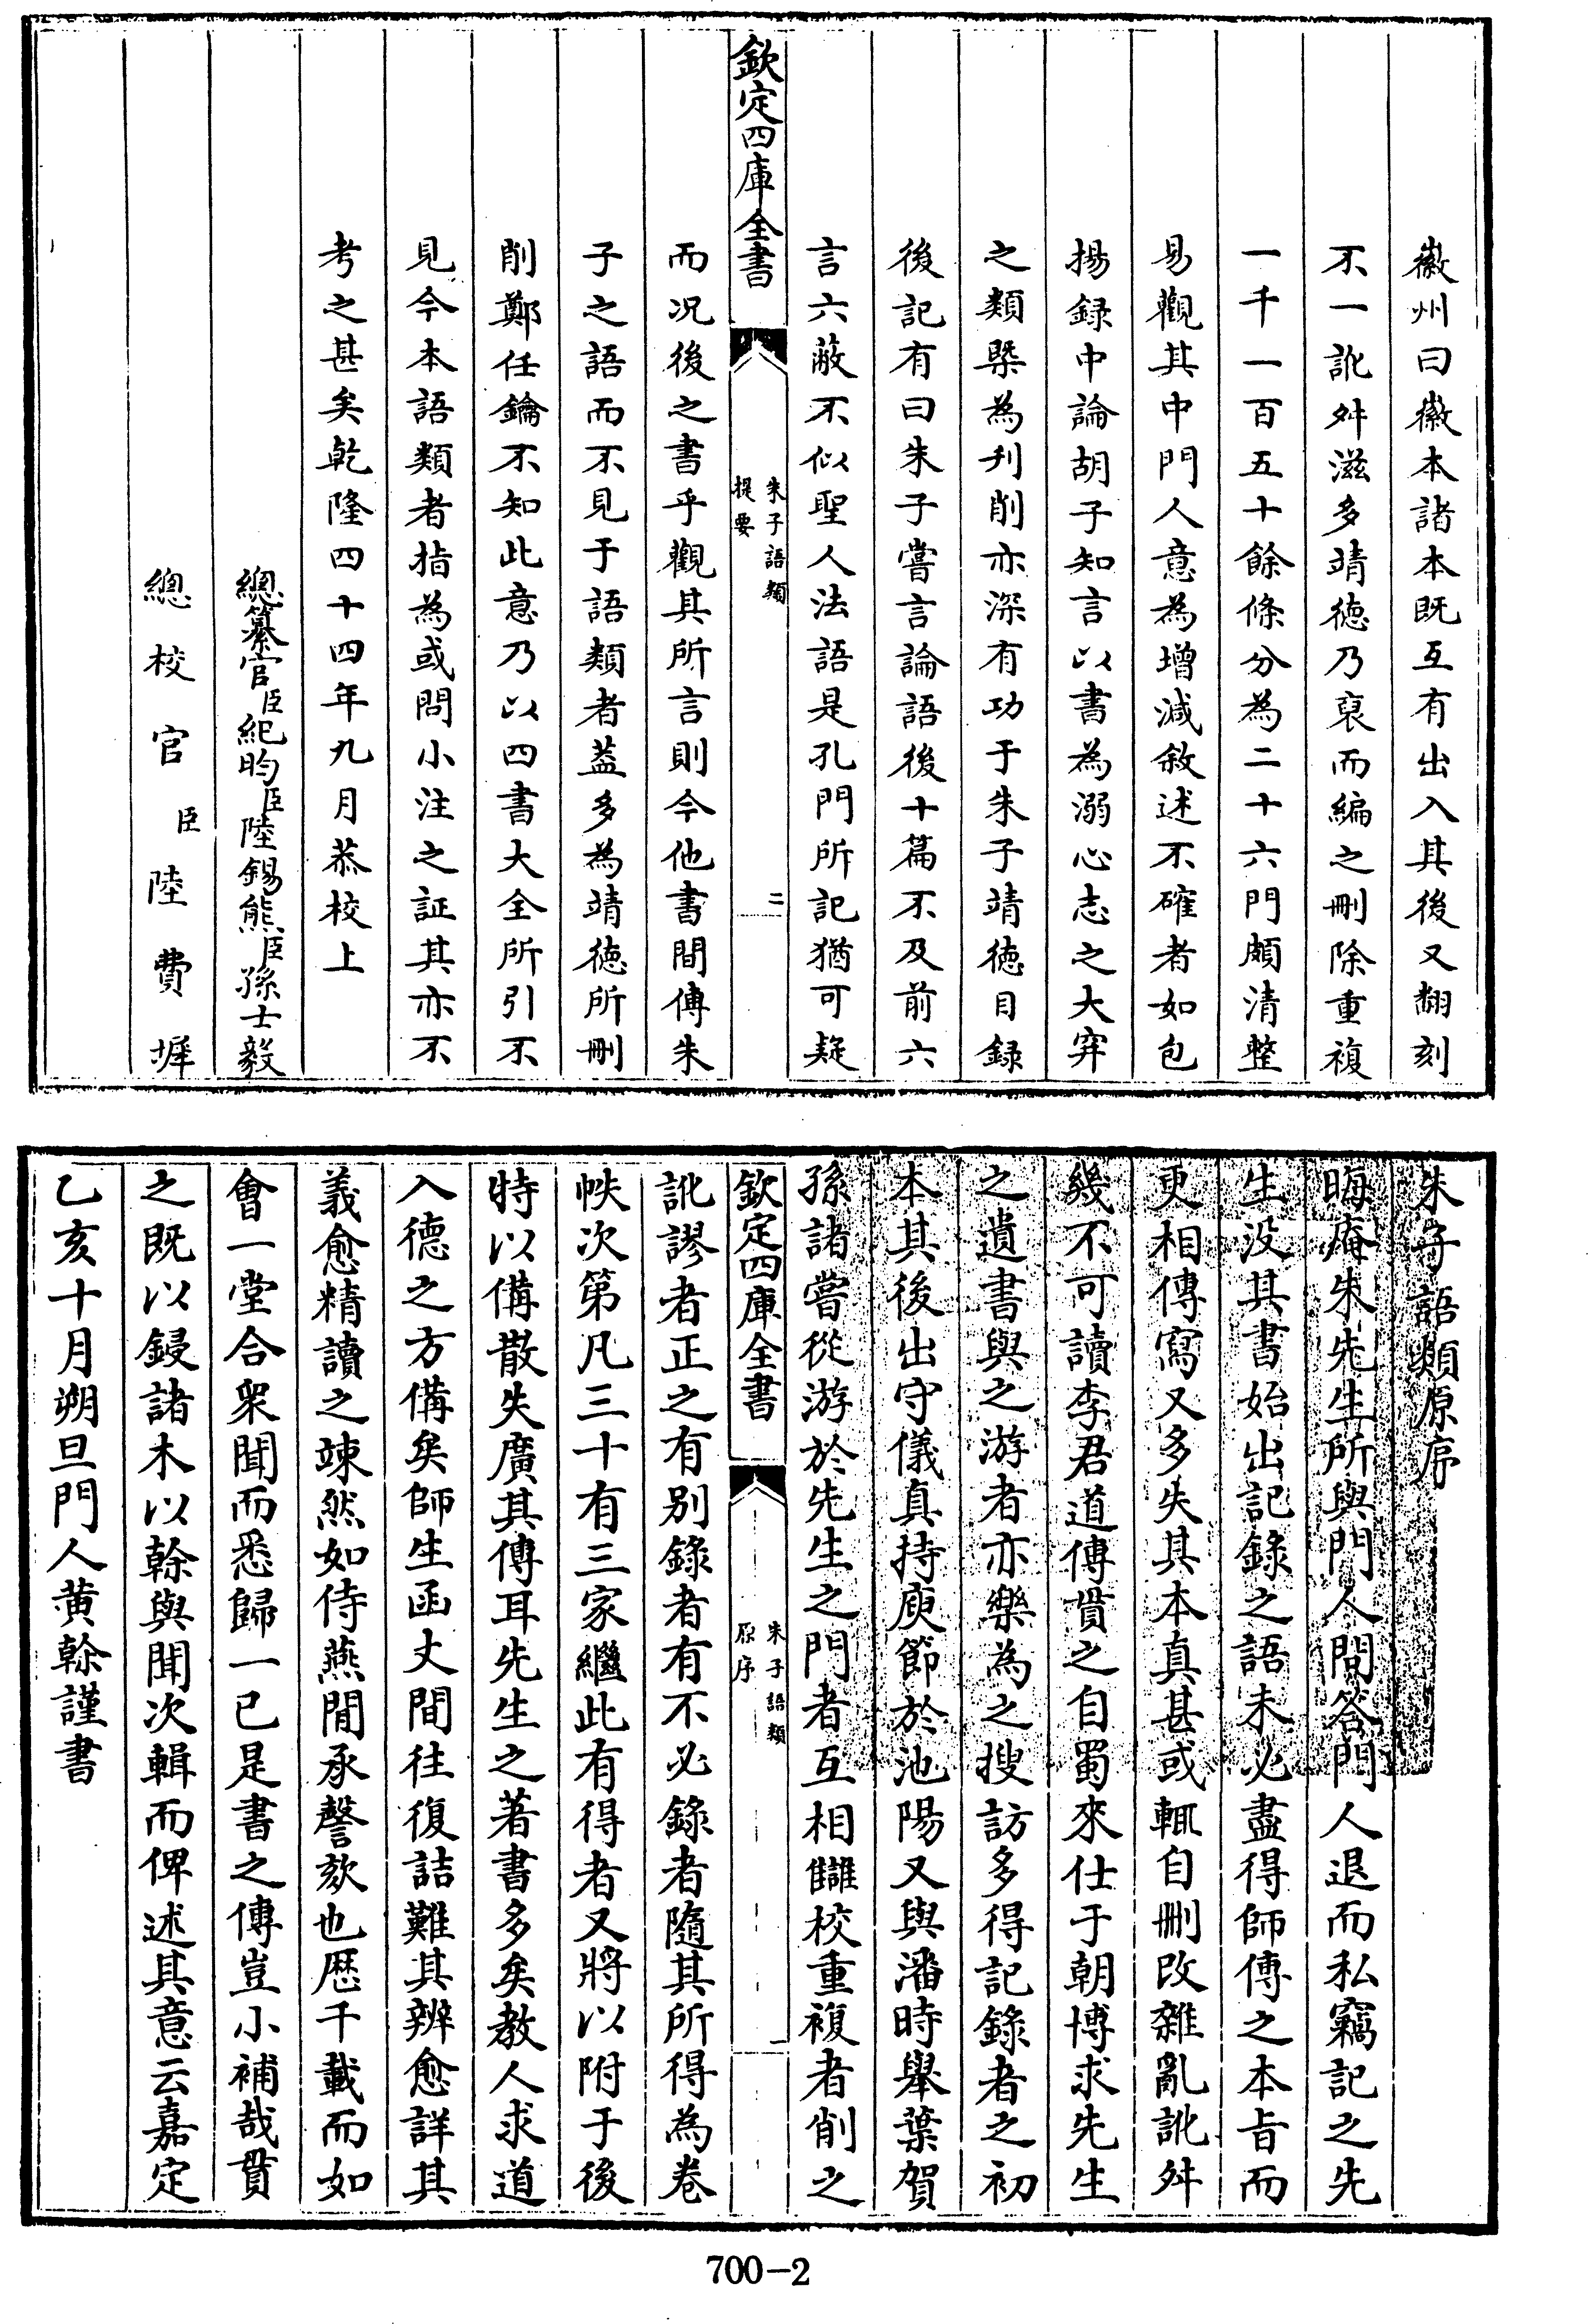 徽州曰徽本諸本既互有出入其後又翻刻
不一訛舛滋多靖徳乃裒而編之刪除重複
一千一百五十餘條分為二十六門頗清整
易觀其中門人意為増減敘述不確者如包
揚録中論胡子知言以書為溺心志之大穽
之類槩為刋削亦深有功于朱子靖徳目録
後記有曰朱子嘗言論語後十篇不及前六
言六蔽不似聖人法語是孔門所記猶可疑
欽定四庫全書
朱子語類
提要
二
而况後之書乎觀其所言則今他書間傳朱
子之語而不見于語類者蓋多為靖徳所刪
削鄭任鑰不知此意乃以四書大全所引不
見今本語類者指為或問小注之証其亦不
考之甚矣乾隆四十四年九月恭校上
總纂官臣紀昀臣陸錫熊臣孫士毅
總校官臣陸費墀
朱子語類原序
晦庵朱先生所與門人問答門人退而私竊記之先
生没其書始出記錄之語未必盡得師傳之本旨而
更相傳寫又多失其本真甚或輒自刪改雜亂訛舛
幾不可讀李君道傳貫之自蜀來仕于朝博求先生
之遺書與之游者亦樂為之搜訪多得記錄者之初
本其後出守儀真持庾節於池陽又與潘時舉葉賀
孫諸嘗從游於先生之門者互相讎校重複者削之
欽定四庫全書
朱子語類
原序
一
訛謬者正之有别錄者有不必錄者隨其所得為卷
帙次第凡三十有三家繼此有得者又將以附于後
特以備散失廣其傳耳先生之著書多矣教人求道
入德之方備矣師生函丈間往復詰難其辨愈詳其
義愈精讀之竦然如侍燕閒承謦欬也歷千載而如
會一堂合衆聞而悉歸一己是書之傳豈小補哉貫
之既以鋟諸木以榦與聞次輯而俾述其意云嘉定
乙亥十月朔旦門人黄榦謹書
700-2